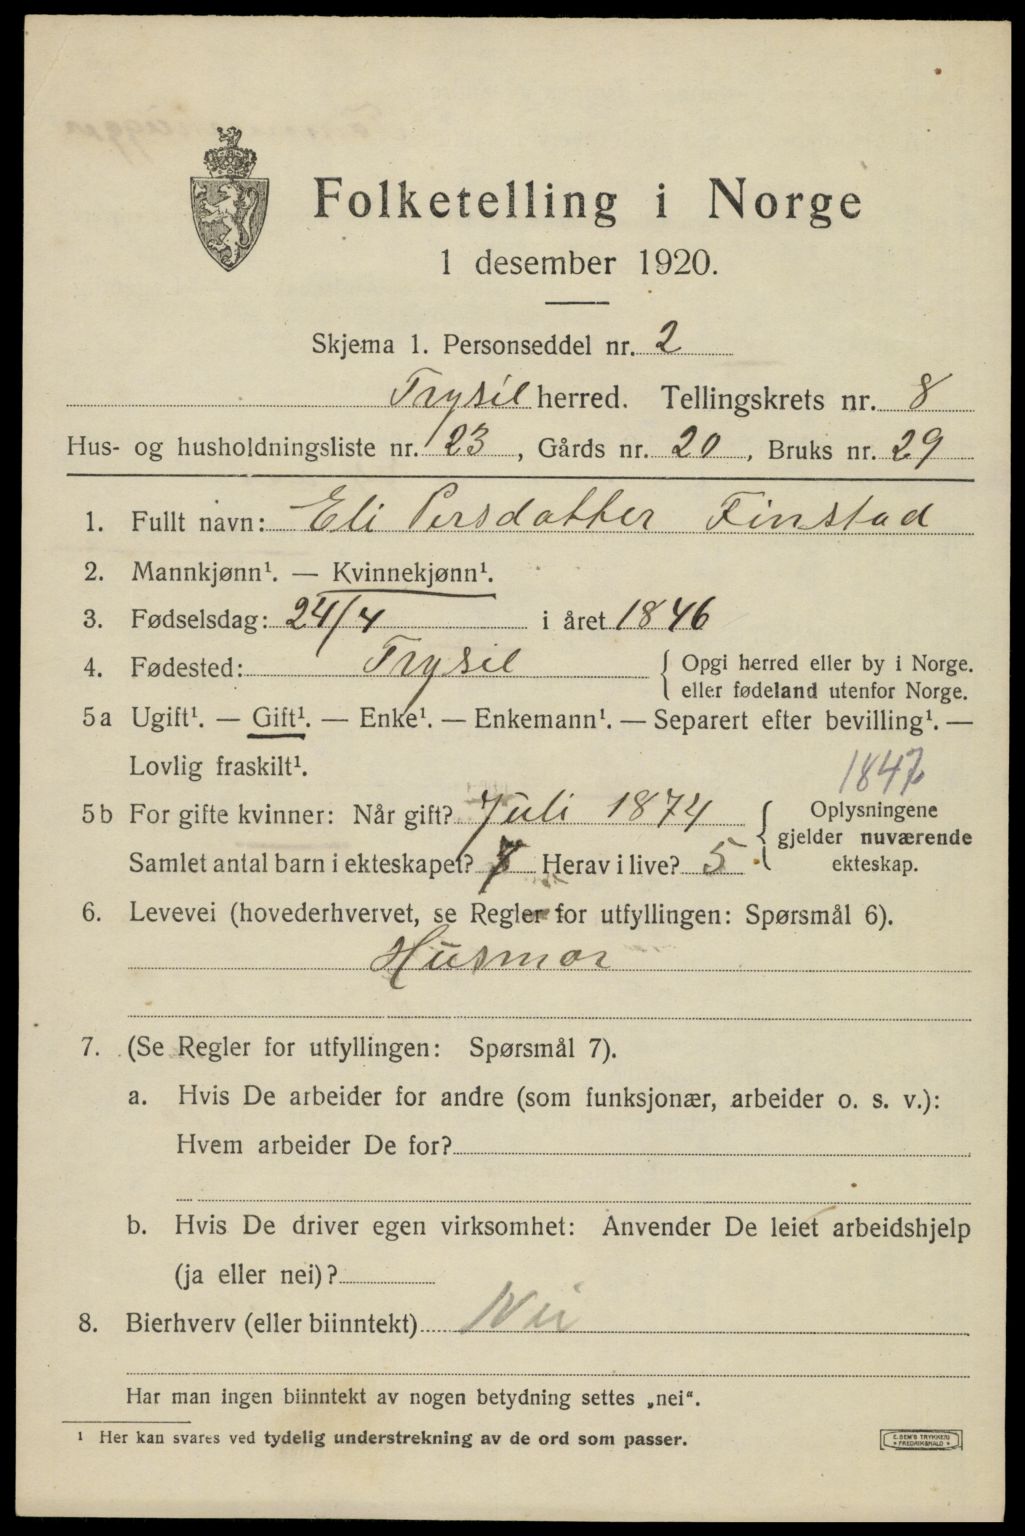 Folketelling i Norge
1 desember 1920.
Skjema 1. Personseddel nr. 2
Trysil herred. Tellingskrets nr. 8
Hus- og husholdningsliste nr. 23, Gårds nr. 20, Bruks nr. 29
1. Fullt navn: Eli Persdatter Finstad
2. Mannkjønn¹. — Kvinnekjønn¹.
3. Fødselsdag: 24/4 i året 1846
4. Fødested: Trysil { Opgi herred eller by i Norge.
eller fødeland utenfor Norge.
5a Ugift¹. — Gift¹. — Enke¹. — Enkemann¹. — Separert efter bevilling¹. —
Lovlig fraskilt¹.
1847
5b For gifte kvinner: Når gift? Juli 1874 { Oplysningene
gjelder nuværende
Samlet antal barn i ekteskapet? 7 Herav i live? 5 . ekteskap.
6. Levevei (hovederhvervet, se Regler for utfyllingen: Spørsmål 6).
Husmor
7. (Se Regler for utfyllingen: Spørsmål 7).
a. Hvis De arbeider for andre (som funksjonær, arbeider o. s. v.):
Hvem arbeider De for?
b. Hvis De driver egen virksomhet: Anvender De leiet arbeidshjelp
(ja eller nei)?
8. Bierhverv (eller biinntekt) Nei
Har man ingen biinntekt av nogen betydning settes „nei“.
¹ Her kan svares ved tydelig understrekning av de ord som passer.
E. SEM'S TRYKKERI
* FREDRIKSHALD *